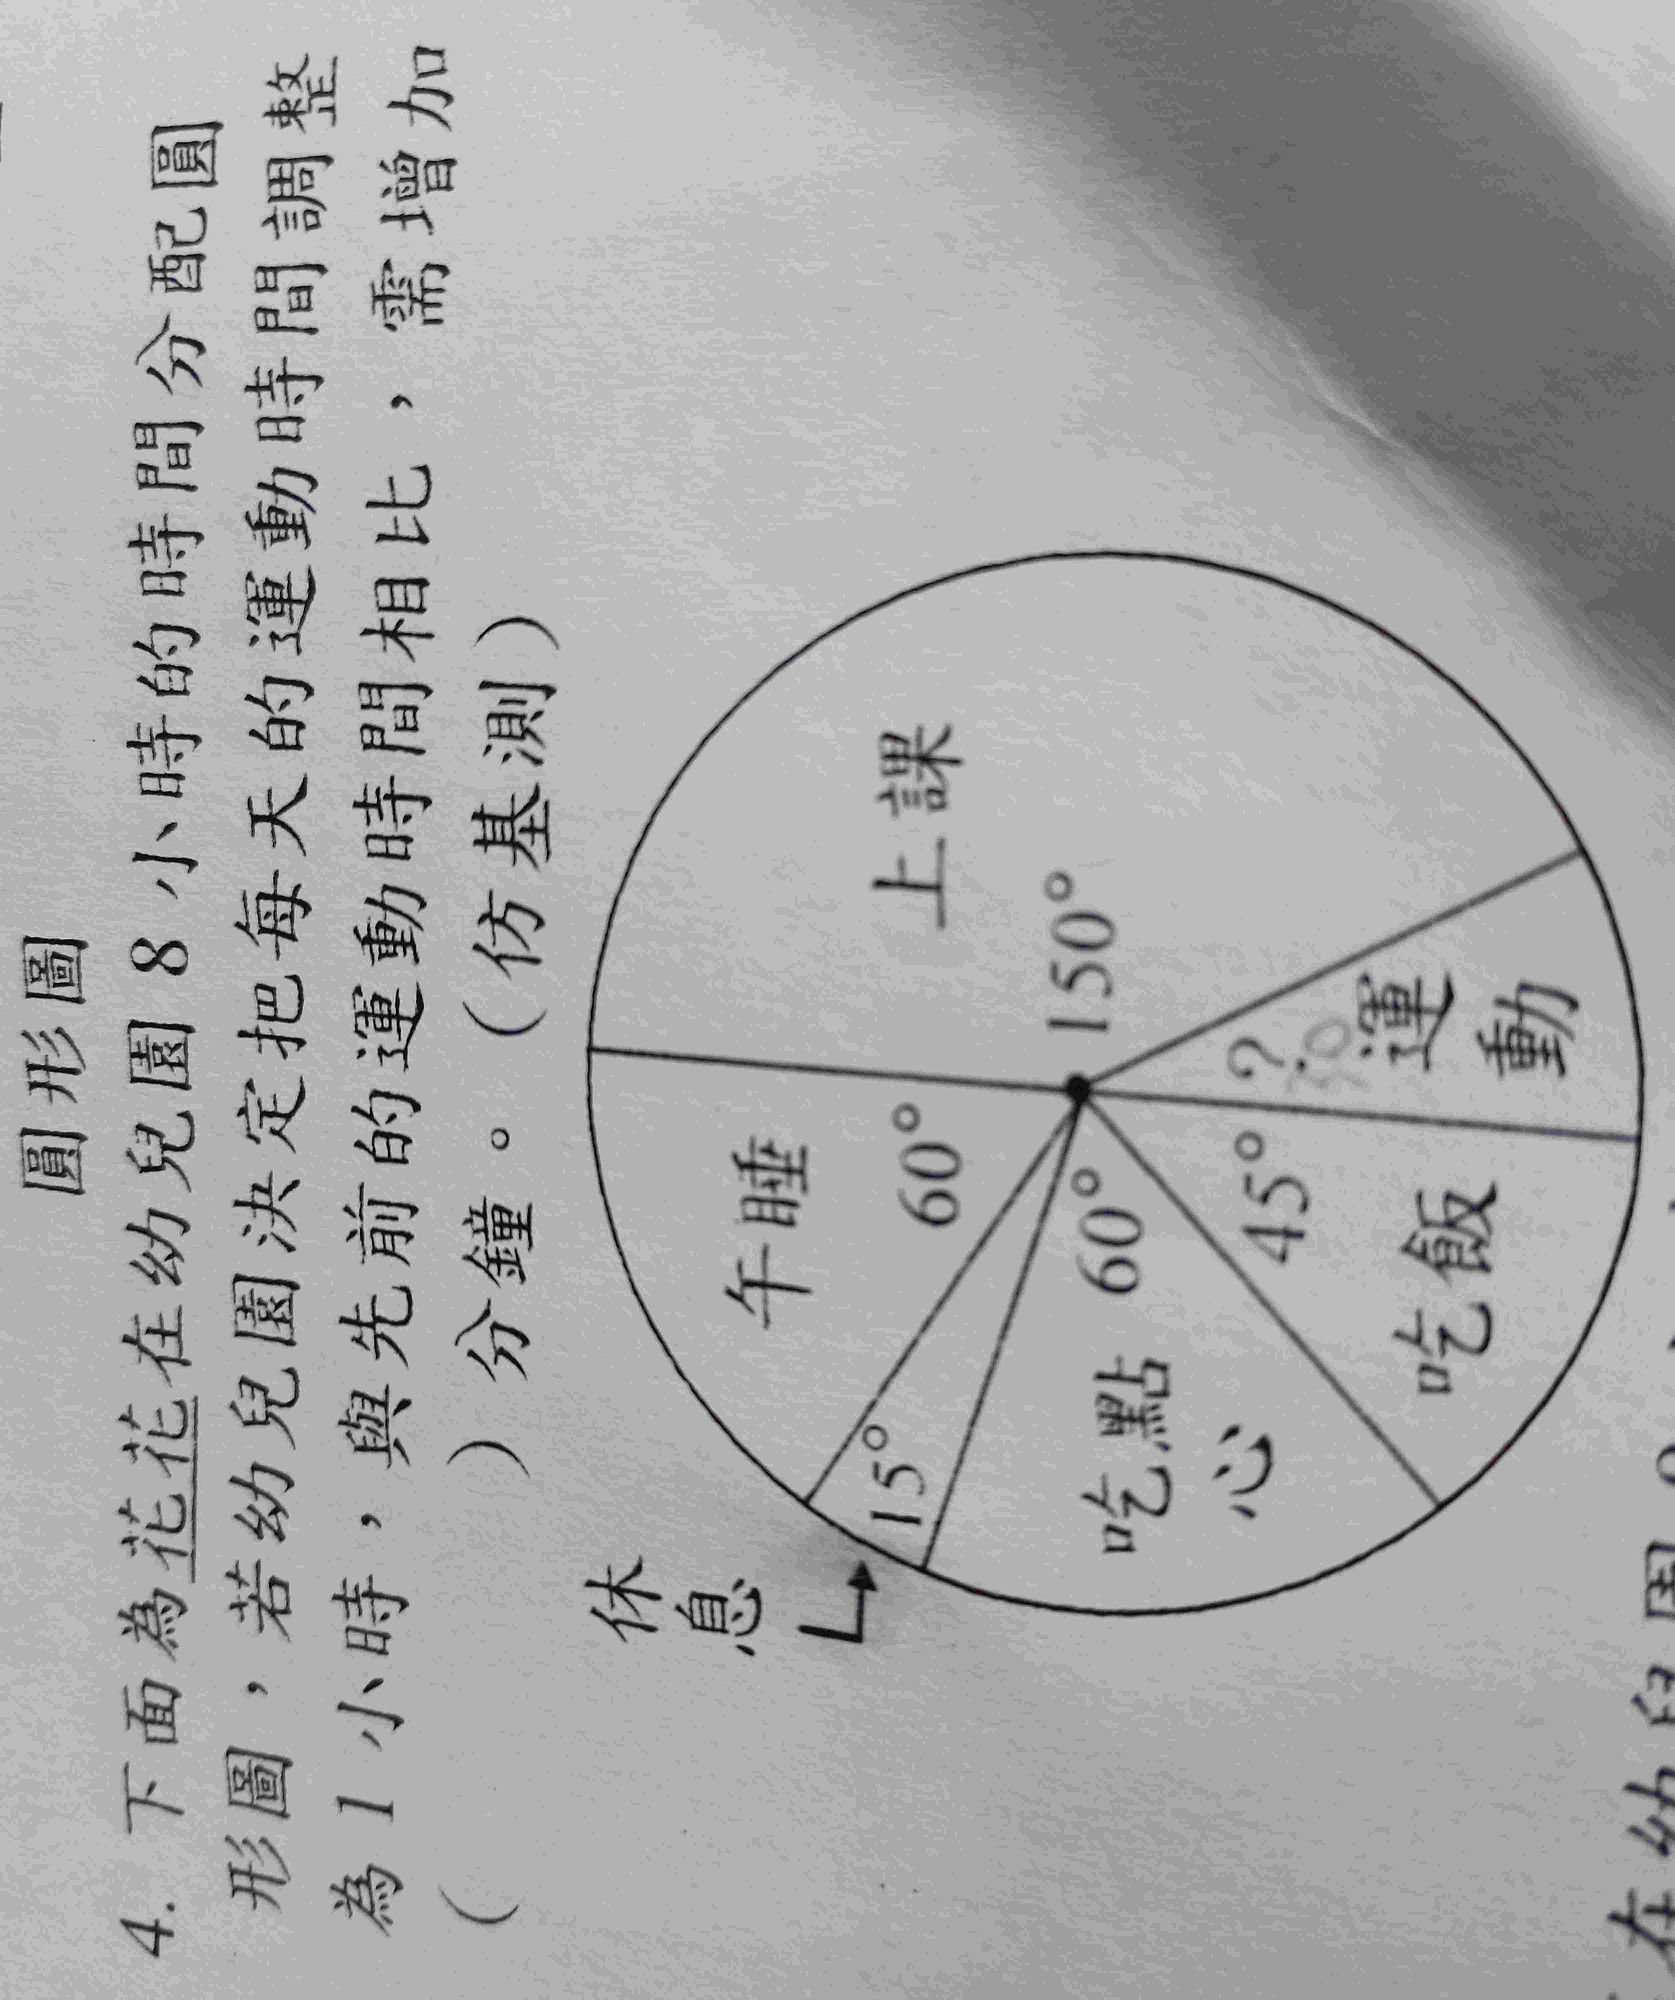 圓形圖
4. 下面為花花在幼兒園8小時的時間分配圓
形圖，若幼兒園決定把每天的運動時間調整
為1小時，與先前的運動時間相比，需增加
（　　　　）分鐘。（仿基測）
休
息
15°
午睡
60°
上課
150°
吃點
心
60°
45°
吃飯
?
30
運
動